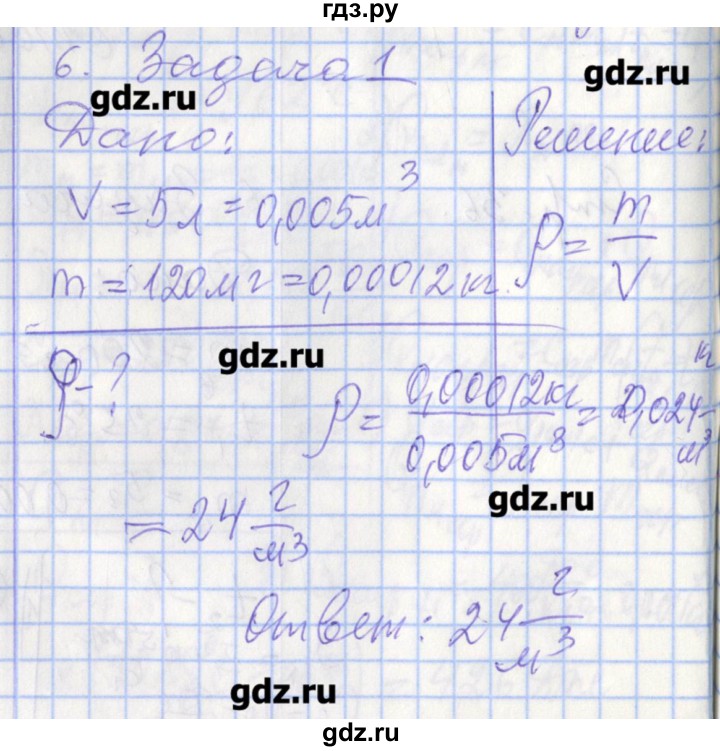 гдз.ру
6. Задача 1
gdz.ru
gdz.ru
Дано:
Решение:
V = 5л = 0,005м³
ρ = m/V
m = 120мг = 0,00012кг
gdz.ru
ρ - ?
ρ = 0,00012кг/0,005м³ = 0,024 кг/м³
gdz.ru
= 24 г/м³
Ответ: 24 г/м³
gdz.ru
gdz.ru